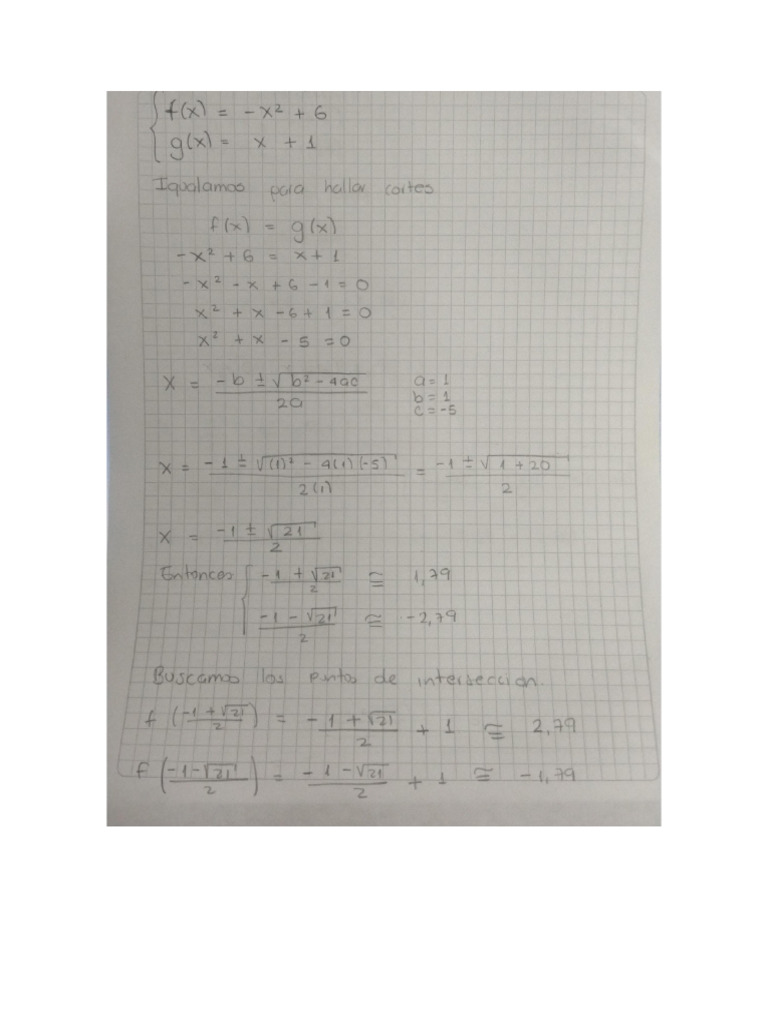 f(x) = -x² + 6
g(x) = x + 1
Igualamos para hallar cortes
f(x) = g(x)
-x² + 6 = x + 1
-x² - x + 6 - 1 = 0
x² + x - 6 + 1 = 0
x² + x - 5 = 0
x = (-b ± √(b² - 4ac)) / 2a   a = 1
b = 1
c = -5
x = (-1 ± √((1)² - 4(1)(-5))) / 2(1) = (-1 ± √(1 + 20)) / 2
x = (-1 ± √21) / 2
Entonces { (-1 + √21) / 2 ≅ 1,79
(-1 - √21) / 2 ≅ -2,79
Buscamos los puntos de interseccion.
f((-1 + √21) / 2) = (-1 + √21) / 2 + 1 ≅ 2,79
f((-1 - √21) / 2) = (-1 - √21) / 2 + 1 ≅ -1,79